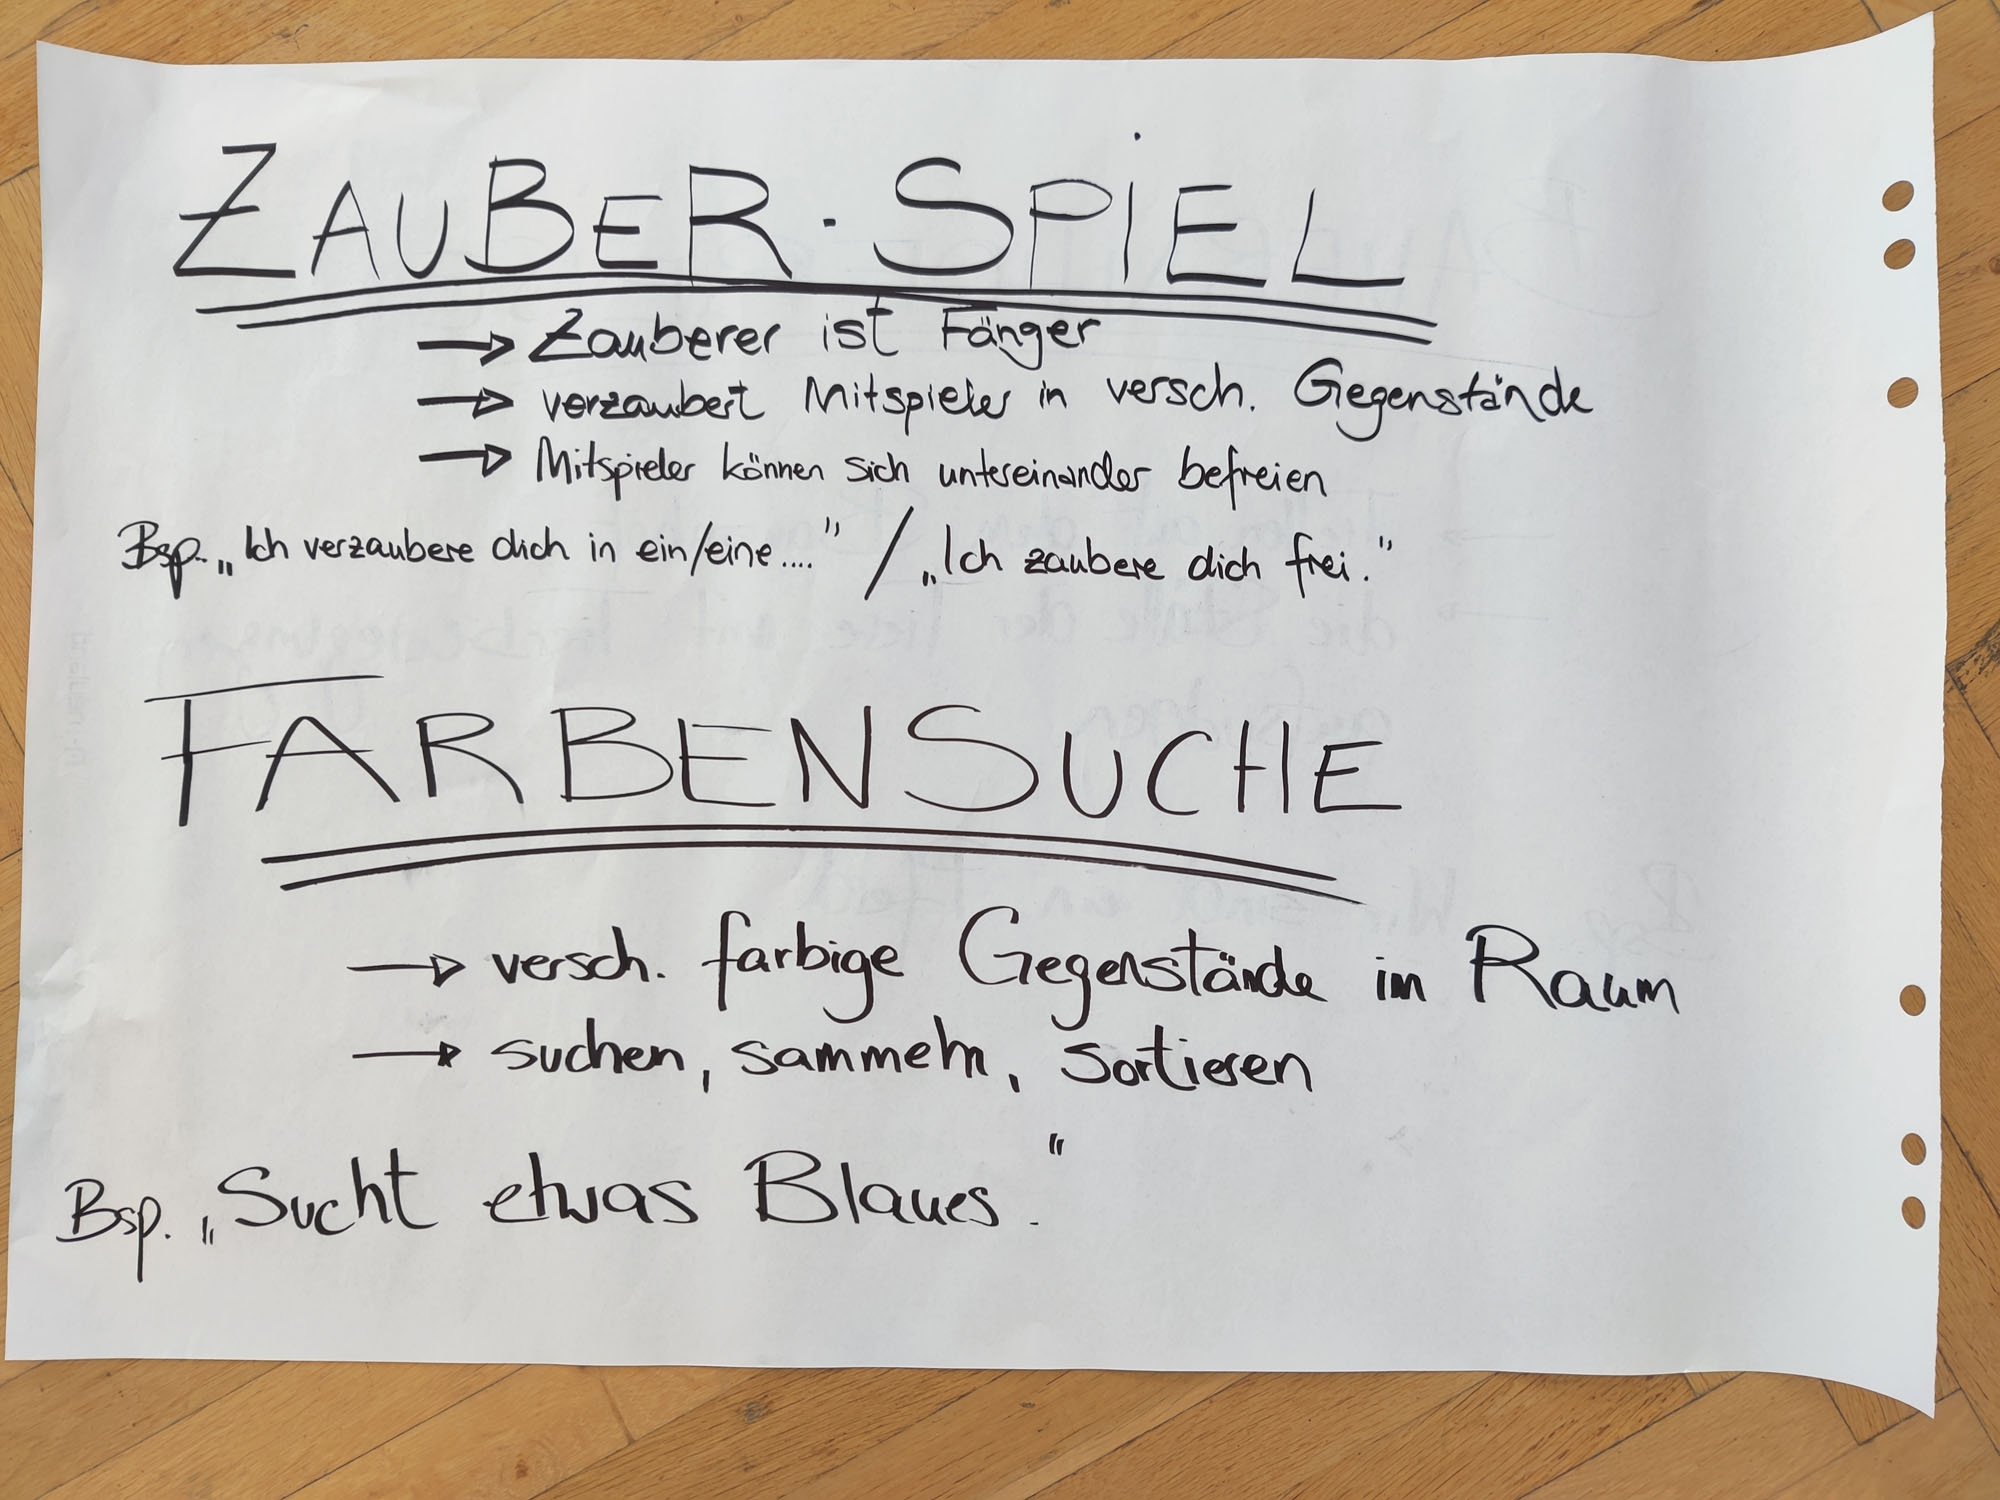 ZAUBER-SPIEL
→ Zauberer ist Fänger
→ verzaubert Mitspieler in versch. Gegenstände
→ Mitspieler können sich untereinander befreien
Bsp. „Ich verzaubere dich in ein/eine...." / „Ich zaubere dich frei."
FARBENSUCHE
→ versch. farbige Gegenstände im Raum
→ suchen, sammeln, sortieren
Bsp. „Sucht etwas Blaues."